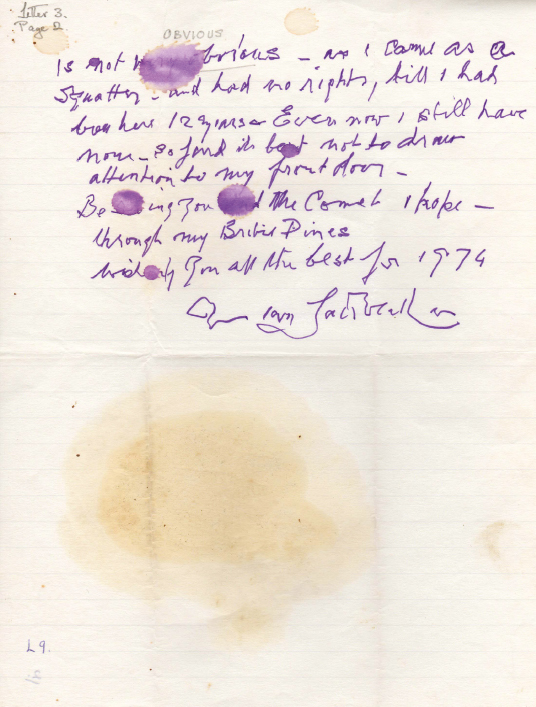 Letter 3.
Page 2
OBVIOUS
Is not obvious – as I came as a
Squatter – and had no rights, till I had
been here 12 years – Even now I still have
none – so find its best not to draw
attention to my front door –
you the Comet I hope –
through my British Pines
wishing you all the best for 1974
L9.